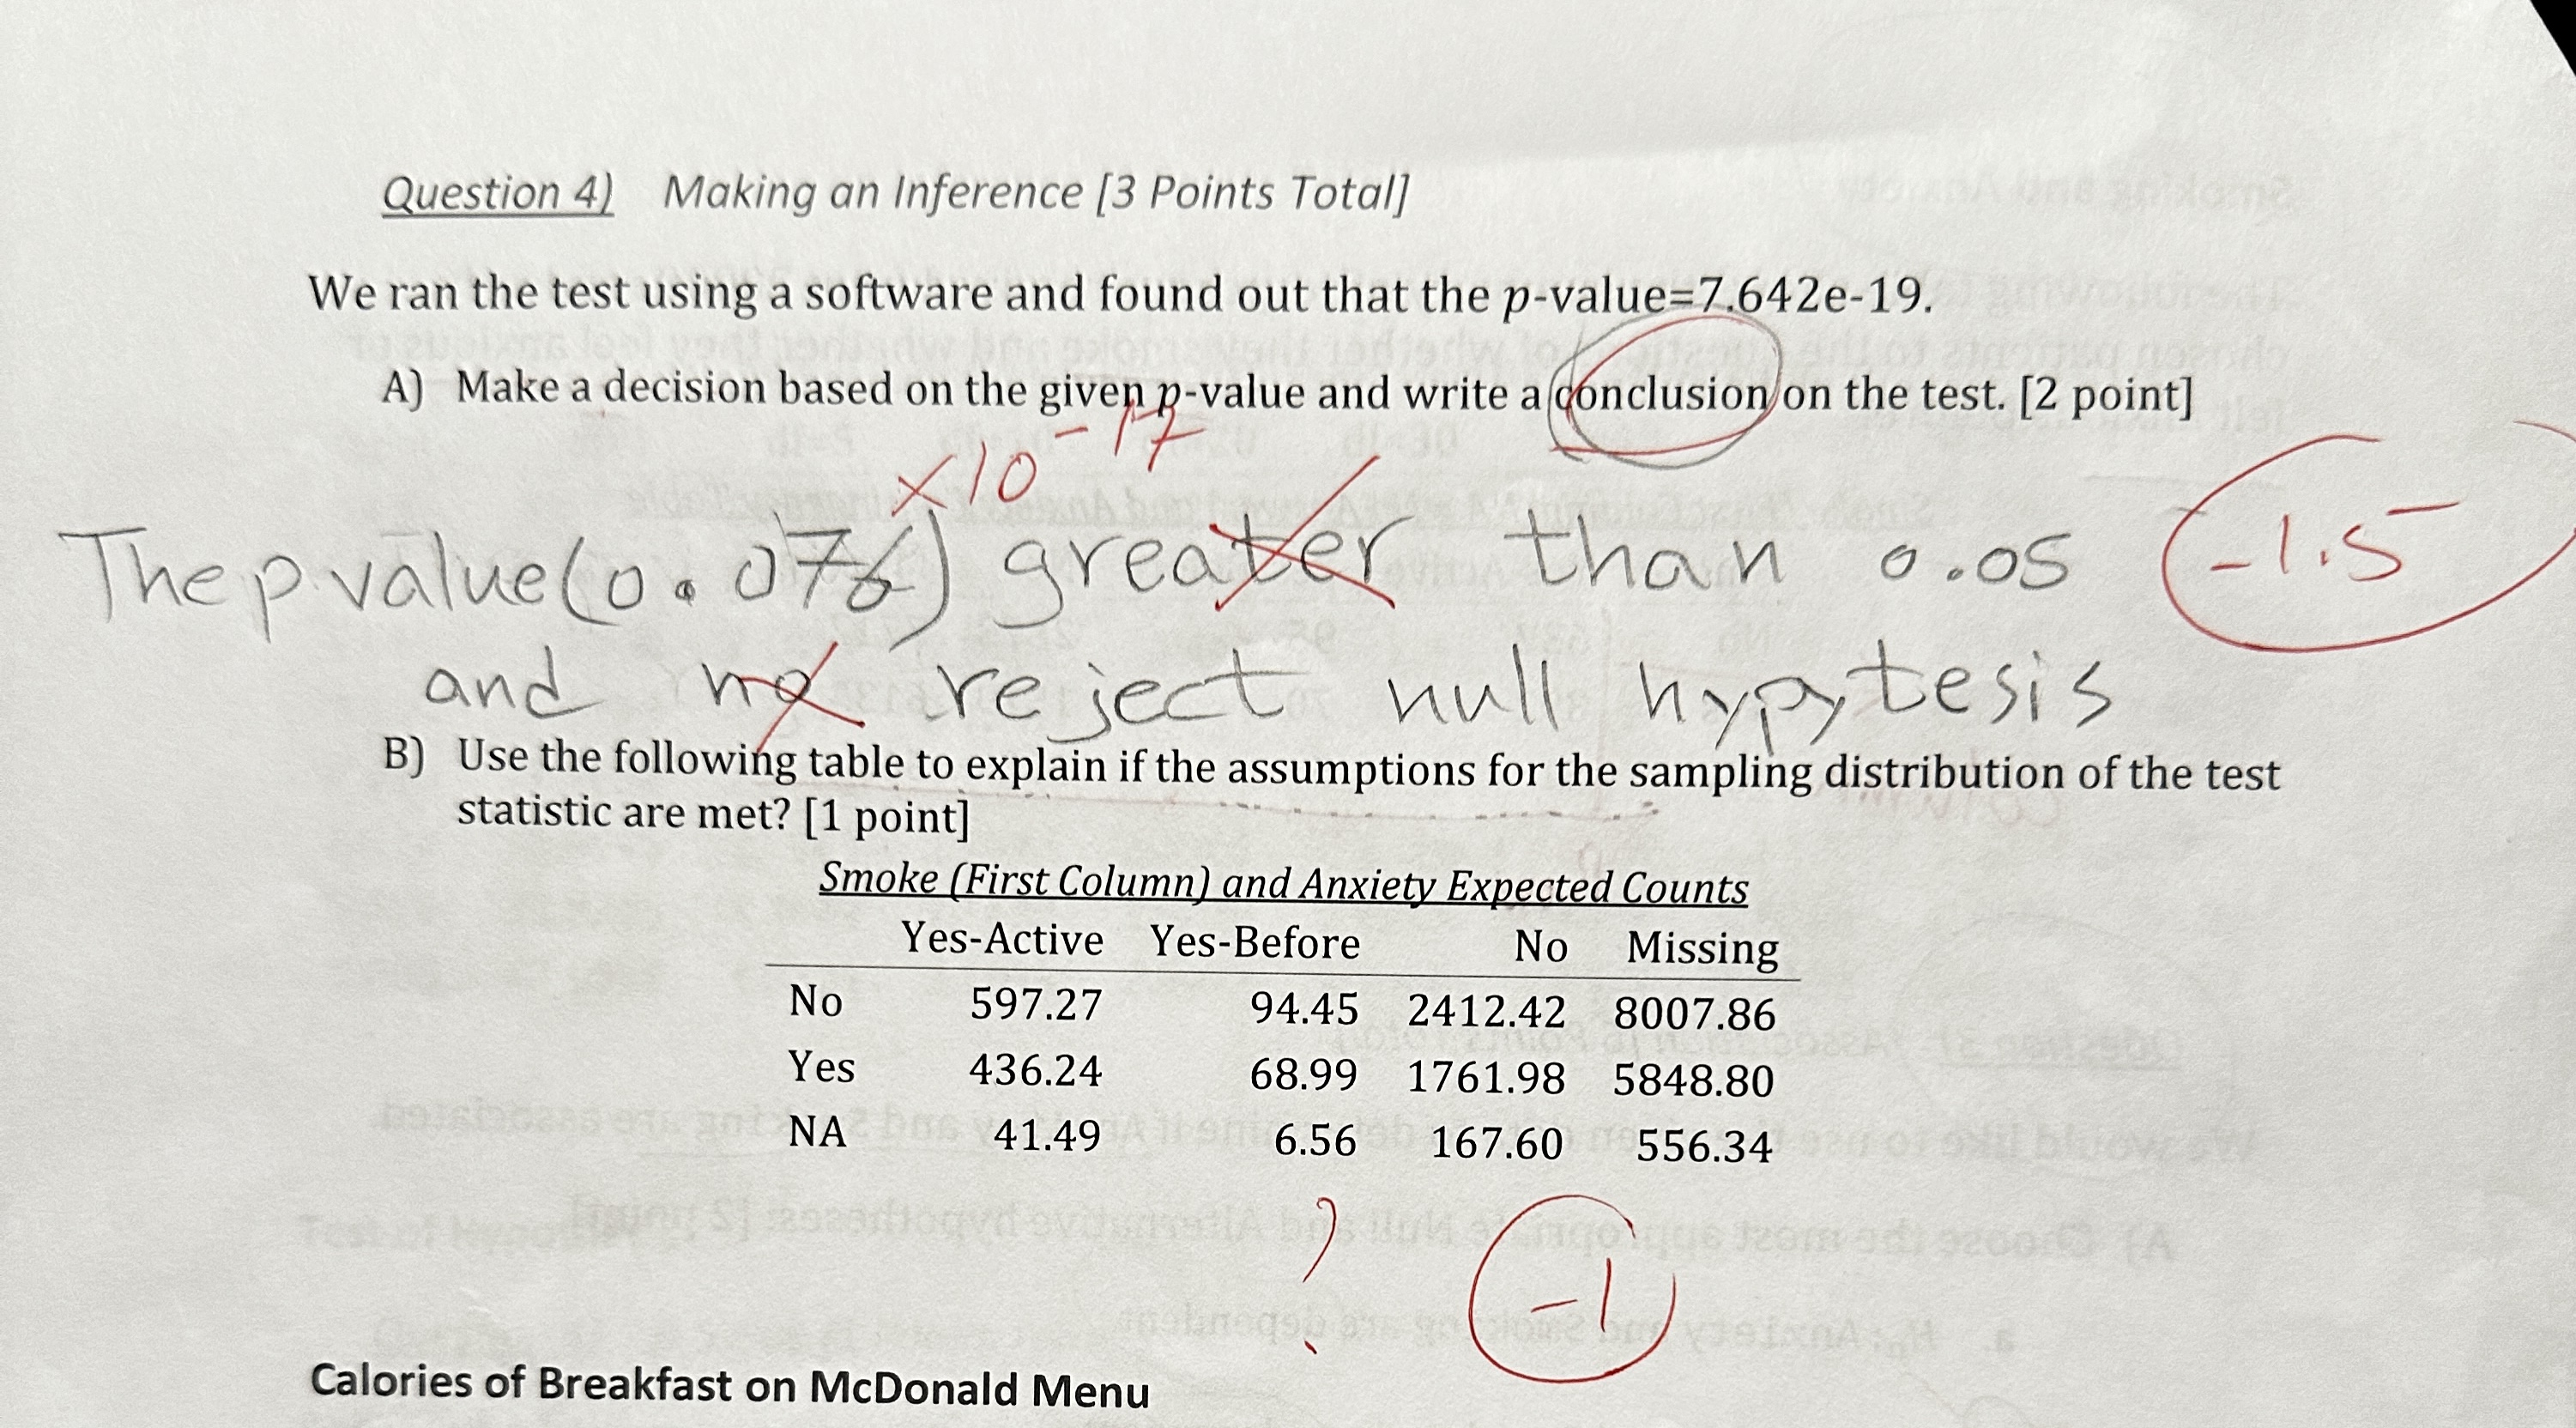 Question 4) Making an Inference [3 Points Total]
We ran the test using a software and found out that the p-value=7.642e-19.
A) Make a decision based on the given p-value and write a conclusion on the test. [2 point]
×10 -17
The p value(0.076) greater than 0.05
-1.5
and no reject null hypytesis
B) Use the following table to explain if the assumptions for the sampling distribution of the test
statistic are met? [1 point]
Smoke (First Column) and Anxiety Expected Counts
Yes-Active Yes-Before No Missing
No 597.27 94.45 2412.42 8007.86
Yes 436.24 68.99 1761.98 5848.80
NA 41.49 6.56 167.60 556.34
? -1
Calories of Breakfast on McDonald Menu